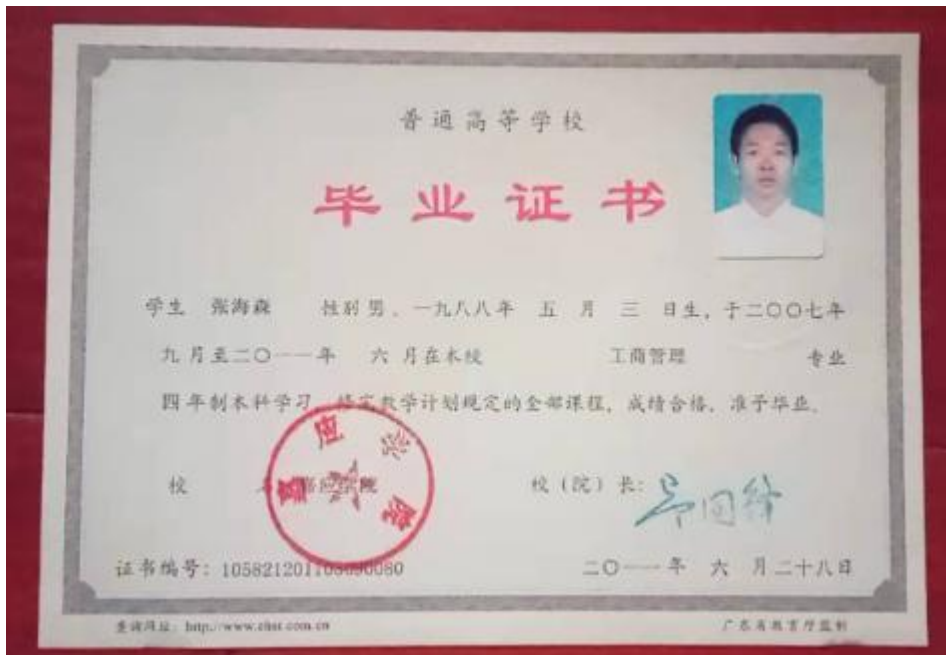 普通高等学校
毕业证书
学生 张海森 性别 男、一九八八年 五 月 三 日生，于二〇〇七年
九 月至二〇一一年 六 月在本校 工商管理 专业
四 年制本科学习，修完教学计划规定的全部课程，成绩合格，准予毕业。
校 名 嘉应学院 校（院）长：
嘉应学院
证书编号：105821201105 二〇一一年 六 月二十八日
查询网址：http://www.chsi.com.cn 广东省教育厅监制